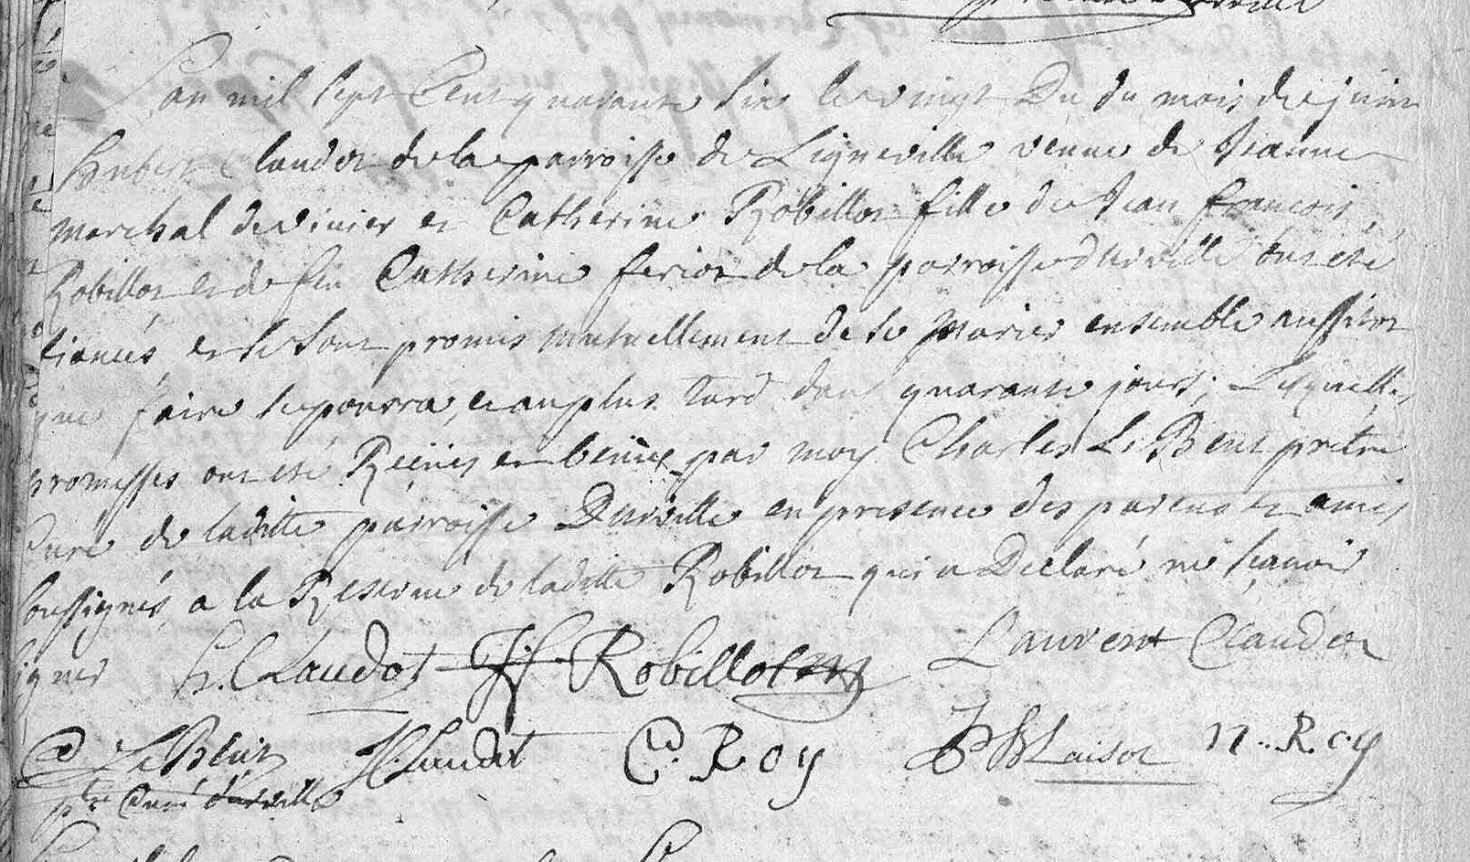 L'an mil sept cent quarante six le vingt Du du mois de juin
hubert Claudot de la parroisse de Ligneville veuve de Jeanne
marchal de vivier et Catherine Robillot fille de Jean françois
Robillot et de feu Catherine feriot de la parroisse d'urville ont eté
fiancés et se sont promis mutuellement de se Marier ensemble aussitot
que faire se pourra, et au plus tard dans quarante jours; Lesquelles
promesses ont eté Reçues et benites par moy Charles Le Bent pretre
Curé de laditte parroisse Durville en presence des parens et amis
soussignés, a la Reserve de laditte Robillot qui a Declaré ne sçavoir
signer H. Claudot JF Robillot Laurent Claudot
C Le Bent H Claudot C. Roy n. Roy
ptre Curé d'urville